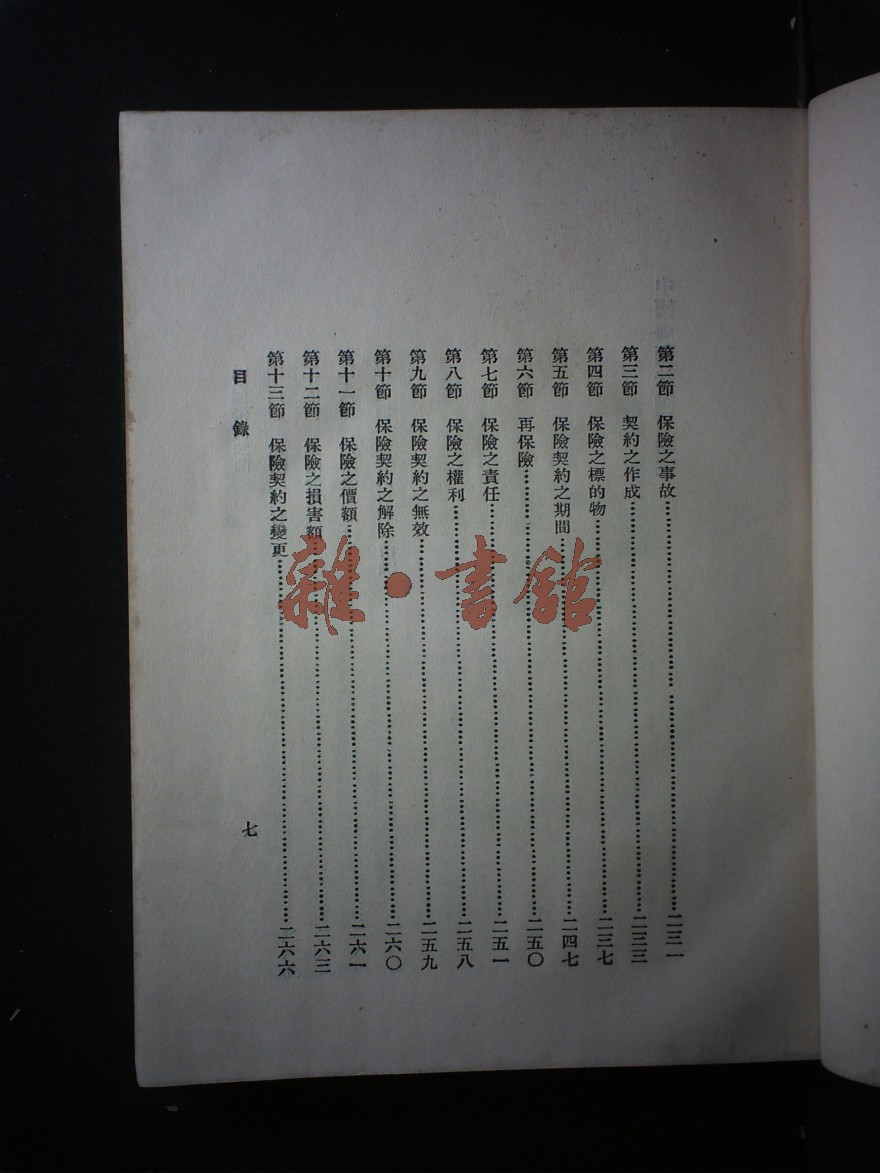 第二節　保險之事故……二三一
第三節　契約之作成……二三三
第四節　保險之標的物……二三七
第五節　保險契約之期間……二四七
第六節　再保險……二五〇
第七節　保險之責任……二五一
第八節　保險之權利……二五八
第九節　保險契約之無效……二五九
第十節　保險契約之解除……二六〇
第十一節　保險之價額……二六一
第十二節　保險之損害額……二六三
第十三節　保險契約之變更……二六六
目錄
七
雜·書館